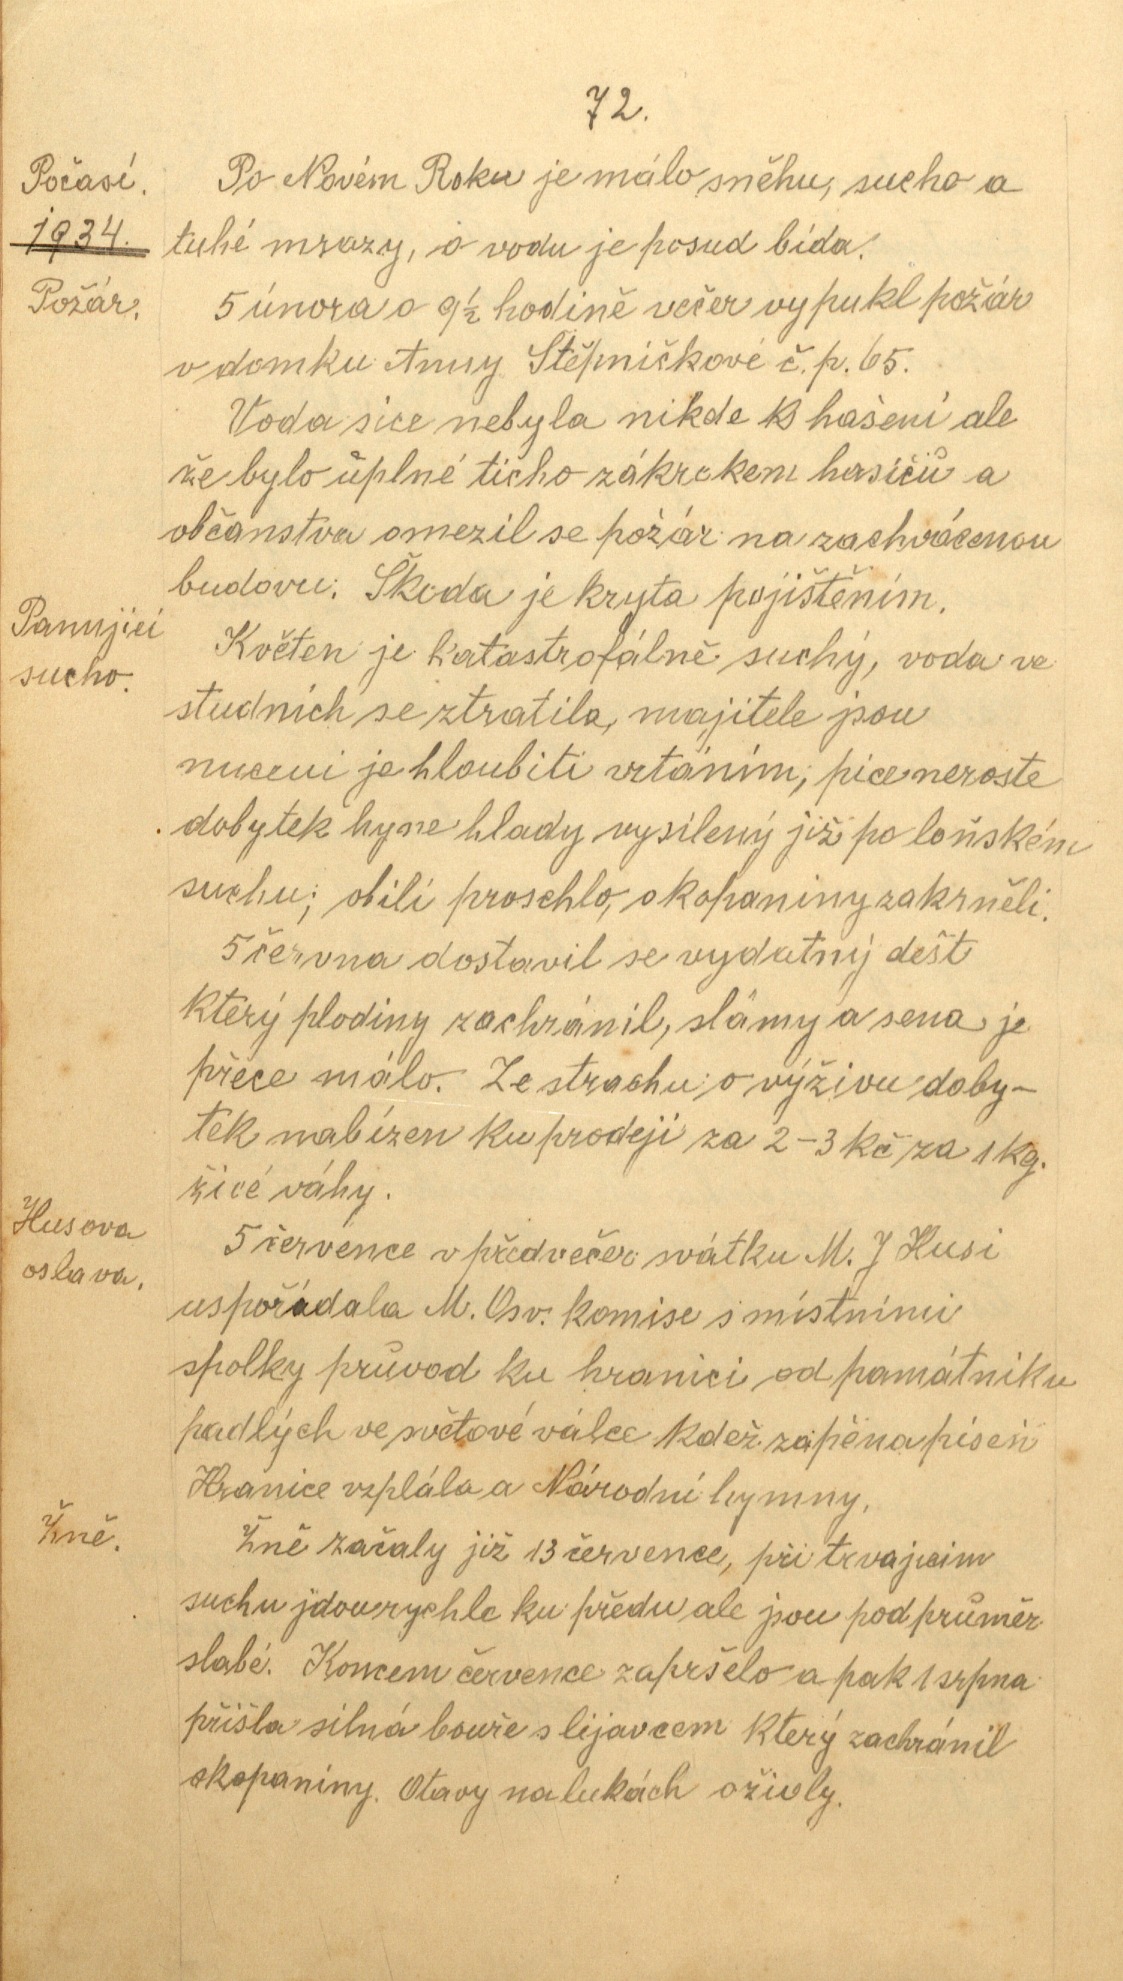 72.
Počasí.
1934.
Po Novém Roku je málo sněhu, sucho a
tuhé mrazy, o vodu je posud bída.
Požár.
5 února o 9½ hodině večer vypukl požár
v domku Anny Štěpničkové č. p. 65.
Voda sice nebyla nikde k hašení ale
že bylo úplné ticho zákrokem hasičů a
občanstva omezil se požár na zachvácenou
budovu. Škoda je kryta pojištěním.
Panující
sucho.
Květen je katastrofálně suchý, voda ve
studních se ztratila, majitele jsou
nuceni je hloubiti vrtáním, píce neroste
dobytek hyne hlady vysílený již po loňském
suchu; obilí proschlo, okopaniny zakrněli.
5 června dostavil se vydatný dešt
který plodiny zachránil, slámy a sena je
přece málo. Ze strachu o výživu doby-
tek nabízen ku prodeji za 2-3 kč za 1 kg.
živé váhy.
Husova
oslava.
5 července v předvečer svátku M. J Husi
uspořádala M. Osv. komise s místními
spolky průvod ku hranici od památníku
padlých ve světové válce kdež zapěna píseň
Hranice vzplála a Národní hymny.
Žně.
Žně začaly již 13 července, při trvajicim
suchu jdou rychle ku předu ale jsou pod průměr
slabé. Koncem července zapršelo a pak 1 srpna
přišla silná bouře s lijavcem který zachránil
okopaniny. Otavy na lukách ožively.